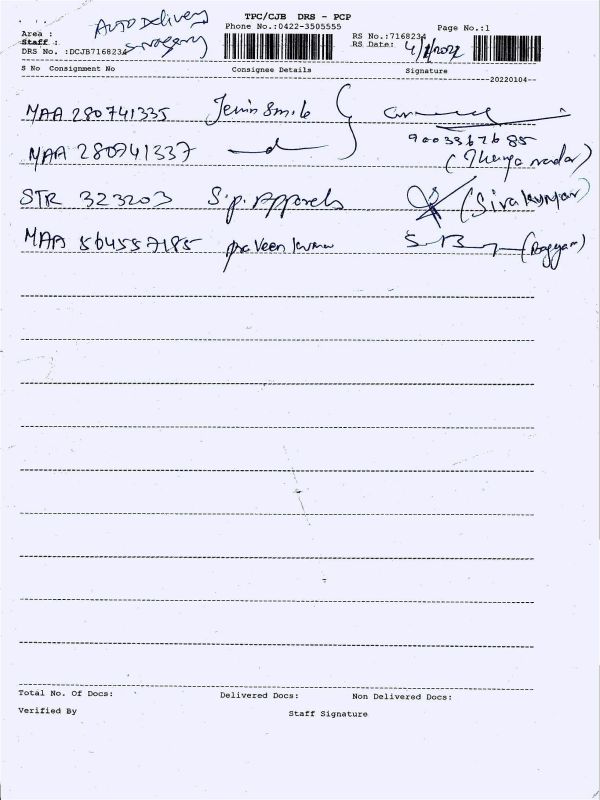 TPC/CJB DRS - PCP
Auto Delivery
Phone No.:0422-3505555
Page No.:1
Area :
RS No.:7168234
Staff :
RS Date: 4/1/2022
DRS No. :DCJB7168234
S No Consignment No Consignee Details Signature
20220104
MAA 280741335 Jenin Smile
9003367685
MAA 280741337
STR 323203 S.p. Apparels (Sivakumar)
MAA 564557185 praveen kumar
Total No. Of Docs: Delivered Docs: Non Delivered Docs:
Verified By Staff Signature